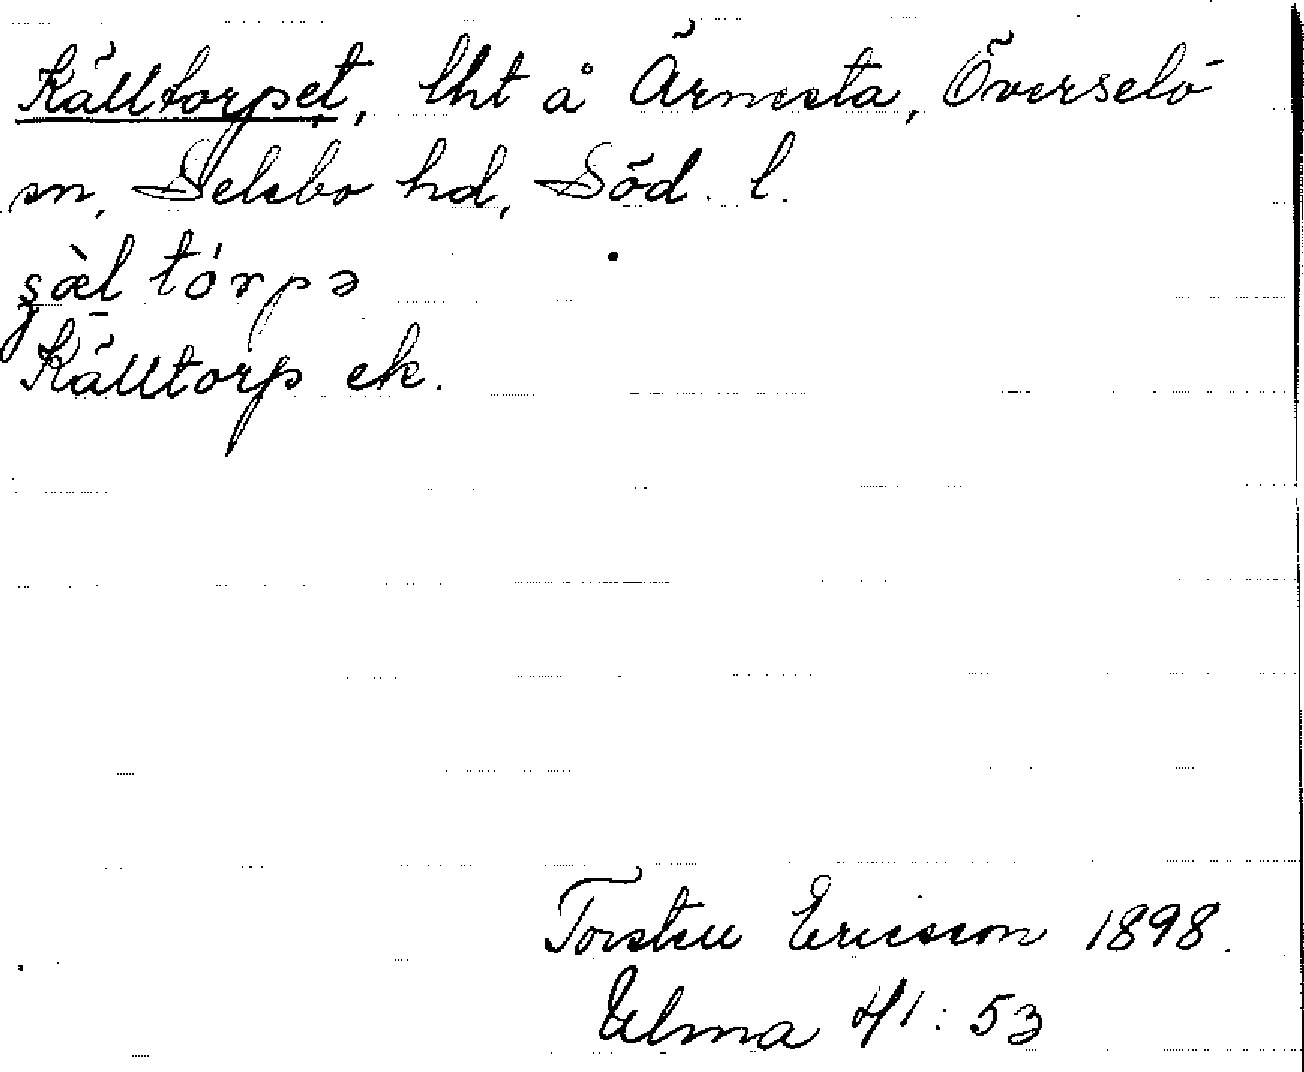 Källtorpet, lht å Ärnesta, Överselö
sn, Selebo hd, Söd. l.
şæ̀l tórpə
Källtorp ek.
Torsten Ericsson 1898.
Ulma 41:53